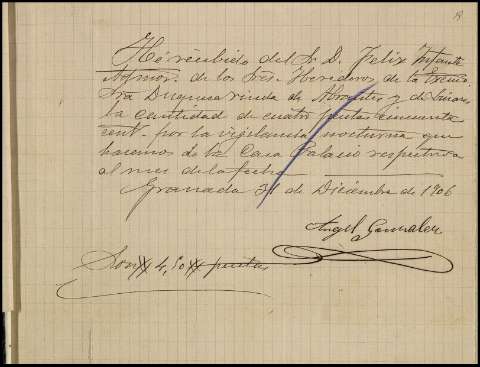 He recibido del Sr. D. Felix Infante
Admor. de los Sres. Herederos de la Excma.
Sra Duquesa viuda de Abrantes y de Linares
la cantidad de cuatro pesetas cincuenta
cent. por la vigilancia nocturna que
hacemos de la Casa Palacio respectiva
al mes de la fecha
Granada 31 de Diciembre de 1906
Angel Gonzalez
Son 4,50 pesetas